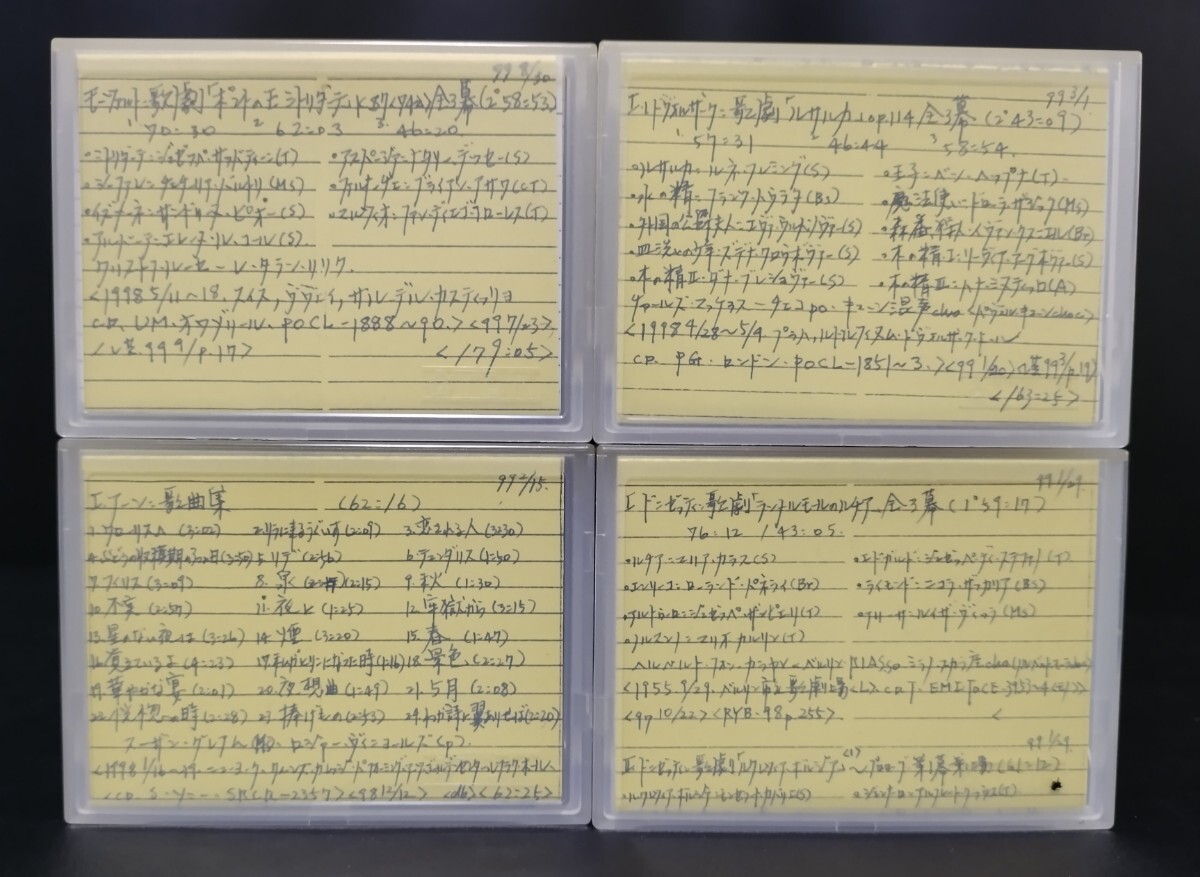 99 8/30
モーツァルト:歌劇「ポントの王ミトリダーテ」K87(74a)全3幕(2°58=53)
1 70=30 2 62=03 3 46=20
・ミトリダーテ=ジュゼッペ・サッバティーニ(T)
・アスパージァ=ナタリー・デッセー(S)
・シーファレ=チェチーリア・バルトリ(MS)
・ファルナーチェ=ブライアン・アサワ(CT)
・イズメーネ=サンドリーヌ・ピオー(S)
・マルツィオ=ファン・ディエゴ・フローレス(T)
・アルバーテ=エレーヌ・ル・コール(S)
クリストフ・ルセ=レ・タラン・リリク
<1998 5/11~18. スイス,
CD. UM. オワゾリール. POCL-1888~90.><99 7/23>
<レ芸99 9/p.17>
<179=05>
99 3/1
I. ドヴォルザーク=歌劇「ルサルカ」op.114 全3幕(2°43=09)
1 57=31 2 46=44 3 58=54
・ルサルカ=ルネ・フレミング(S)
・王子=ベン・ヘップナー(T)
・水の精=フランツ・ハヴラタ(Bs)
・魔法使い=ドローラ・ザジック(MS)
・外国の公爵夫人=エヴァ・ウルバノヴァー(S)
・森番・狩人=イヴァン・クスニエル(Br)
・皿洗いの少年=ズデナ・クロウボヴァー(S)
・木の精I=リーヴィア・アーグホヴァー(S)
・木の精II=ダナ・ブレショヴァー(S)
・木の精III=ハナ・ミヌティッロ(A)
チャールズ・マッケラス=チェコpo. キューン混声cho
<1998 4/28~5/9. プラハ, ルドルフィヌム・ドヴォルザーク・ホール
CD. PG. ロンドン. POCL-1851~3.><99 1/30><レ芸99 3/p.19>
<163=25>
99 2/15.
I. アーン=歌曲集 (62=16)
1. クロリスへ (3=02) 2. リラに来るうぐいす(2=09) 3. 恋される人(3=30)
4. ぶどうの収穫期の三つの日(3=50) 5. リデ (2=56) 6. ティンダリス(1=50)
7. フィリス(3=09) 8. 泉 (2=15) 9. 秋 (1=30)
10. 不実 (2=57) 11. 夜に (1=25) 12. 牢獄から(3=15)
13. 星のない夜は (3=26) 14. 煙 (3=20) 15. 春 (1=47)
16. 覚えているよ (4=23) 17. 私がとりこになった時(1=16) 18. 景色. (2=27)
19. 華やかな宴 (2=01) 20. 夜想曲 (1=49) 21. 5月 (2=08)
22. 恍惚の時(2=28) 23. 捧げもの(2=53) 24. わが詩に翼ありせば(2=20)
スーザン・グレアム(MS). ロジャー・ヴィニョールズ(p).
<CD. ソニー. SRCR-2357><98 12/12> <db> <62=25>
99 1/29.
I. ドニゼッティ=歌劇「ランメルモールのルチア」全3幕(1°59=17)
76=12 / 43=05.
・ルチア=マリア・カラス(S)
・エドガルド=ジュゼッペ・ディ・ステファノ(T)
・エンリーコ=ローランド・パネライ(Br)
・ライモンド=ニコラ・ザッカリア(Bs)
・アルトゥーロ=ジュゼッペ・ザンピエリ(T)
・アリーサ=ルイザ・ヴィッラ(MS)
・ノルマンノ=マリオ・カルリン(T)
ヘルベルト・フォン・カラヤン=ベルリンRIASso. ミラノ・スカラ座cho
<1955. 9/29. ベルリン市立歌劇場<L>. CD. T. EMI. TOCE-3933~4
<97 10/22><RYB. 98p.255>.
99 1/29.
II. ドニゼッティ=歌劇「ルクレツィア・ボルジア」(1)~プロローグ 第1幕第1場(61=12)
・ルクレツィア・ボルジア=モンセラート・カバリエ(S)
・ジェンナーロ=アルフレード・クラウス(T)